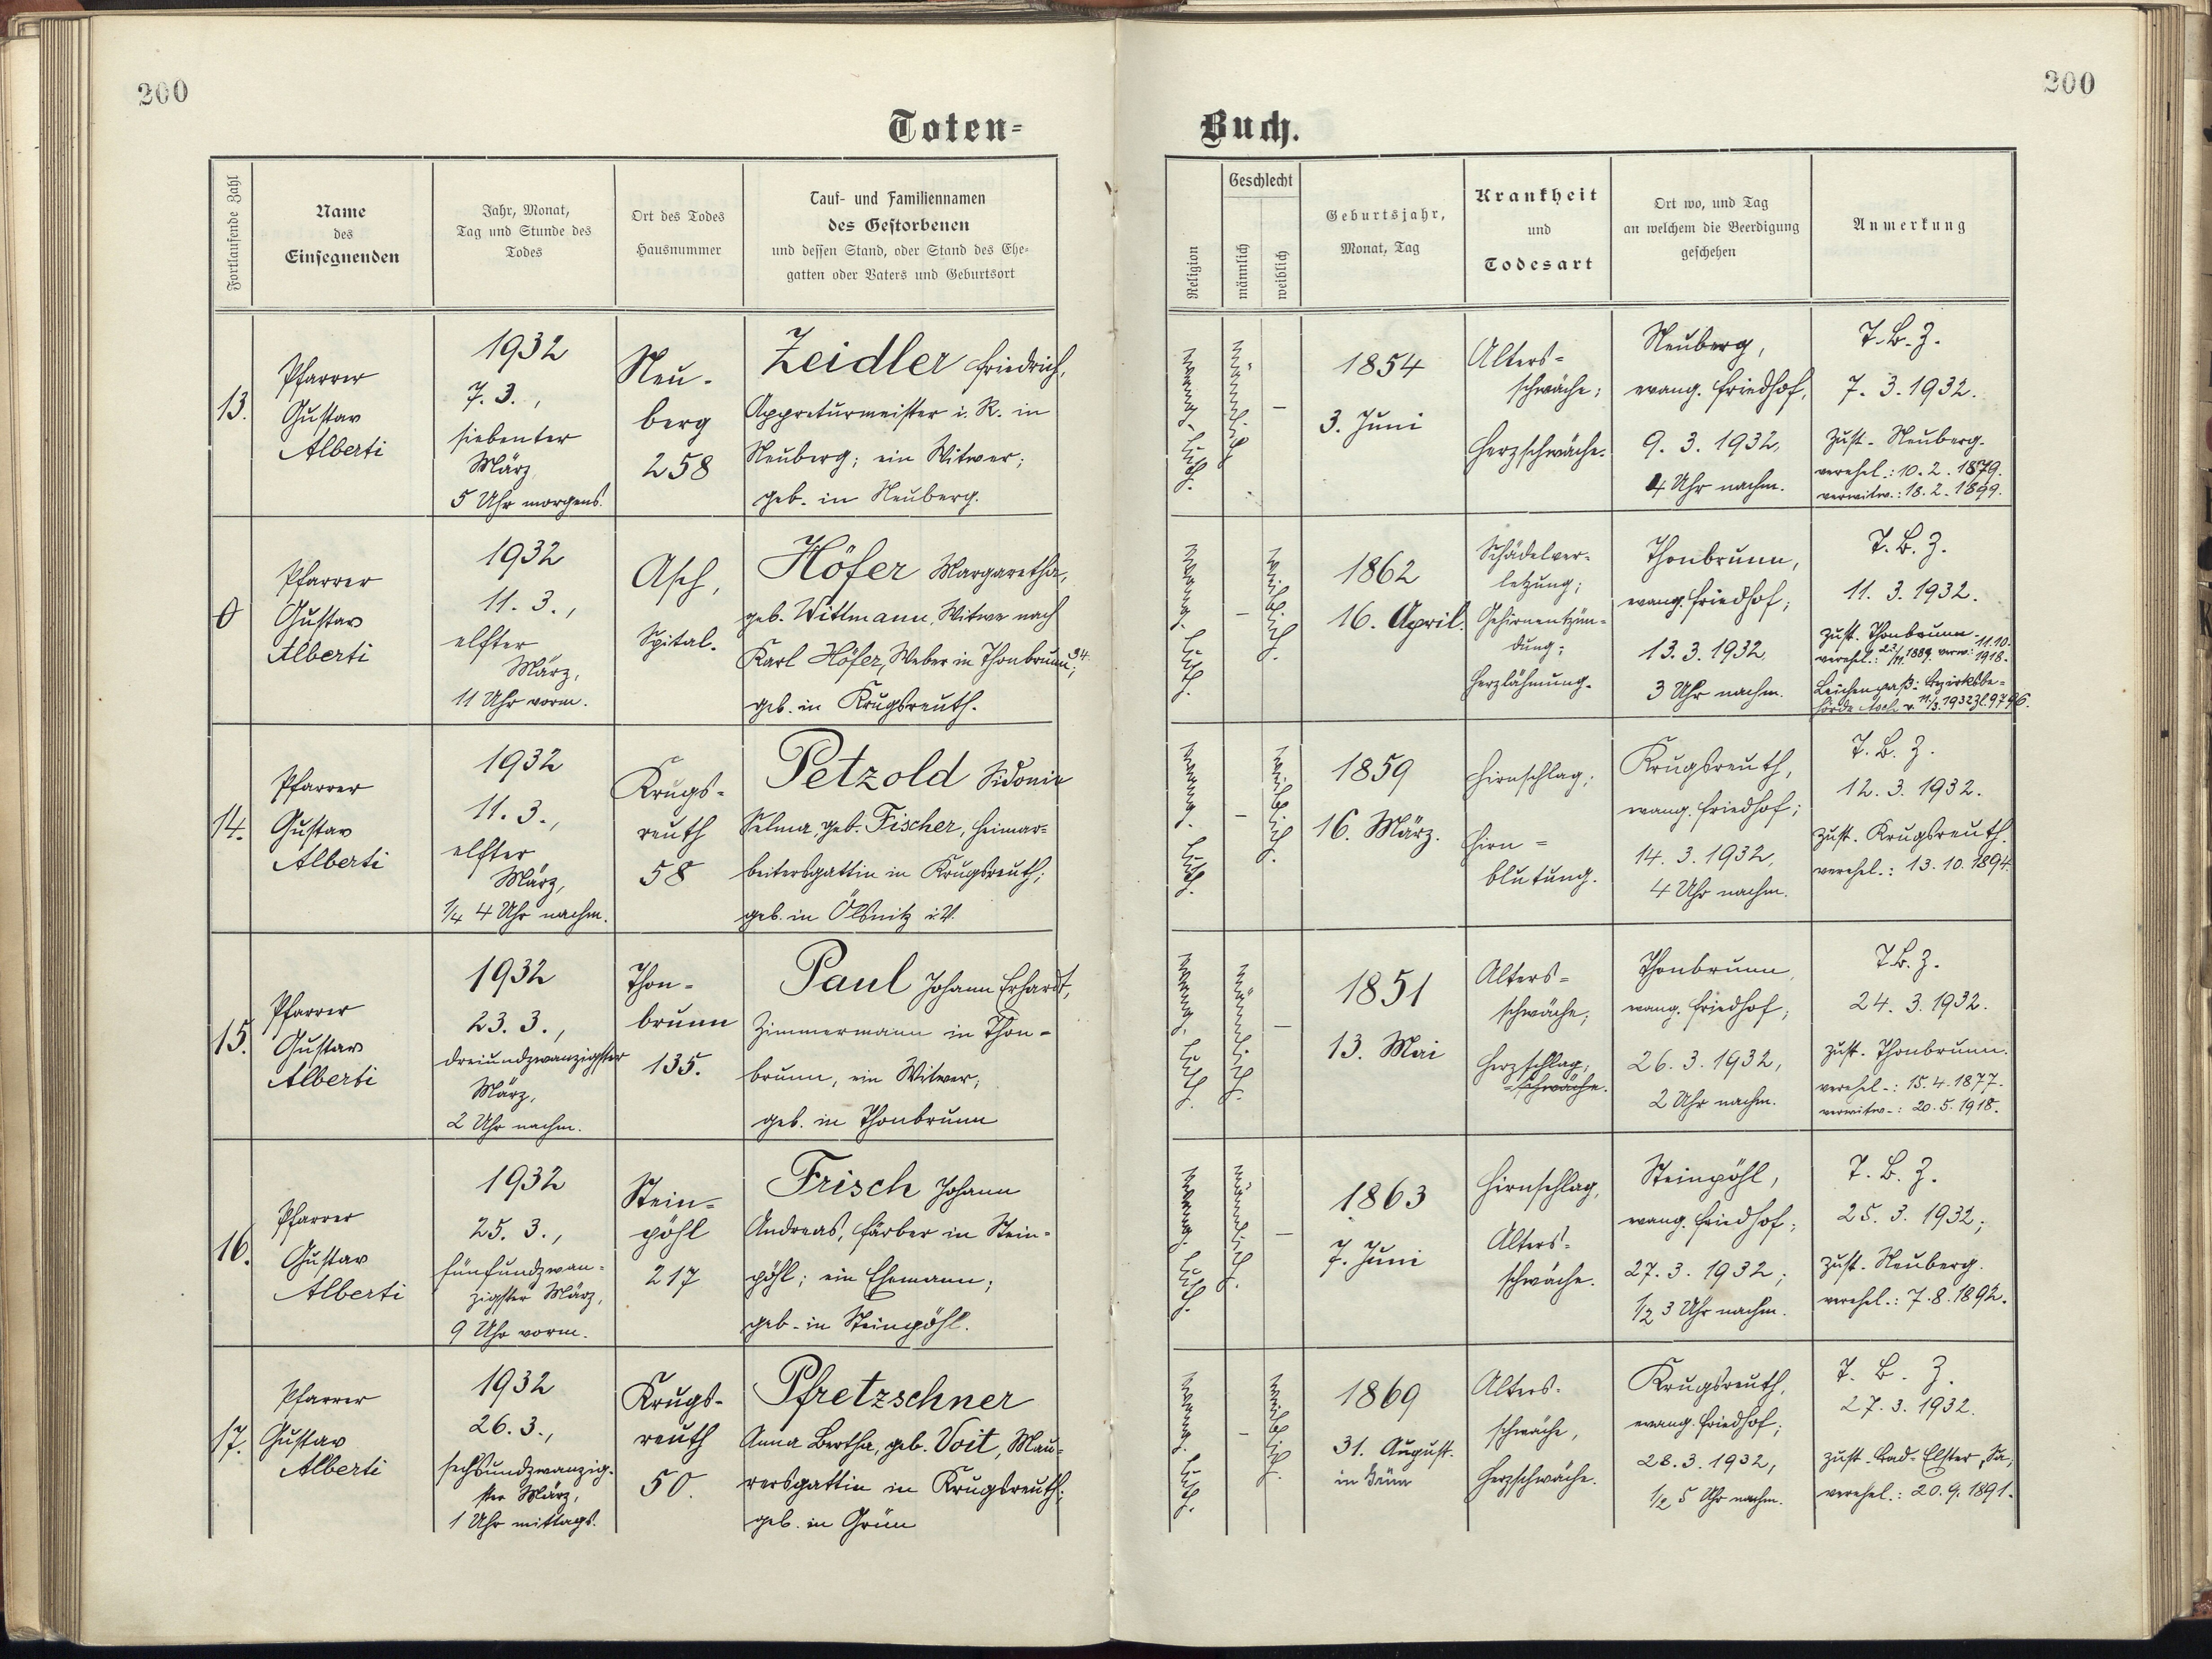 200
200
Toten-
Buch.
Fortlaufende Zahl
Name
des
Einsegnenden
Jahr, Monat,
Tag und Stunde des
Todes
Ort des Todes
Hausnummer
Tauf- und Familiennamen
des Gestorbenen
und dessen Stand, oder Stand des Ehe-
gatten oder Vaters und Geburtsort
Religion
Geschlecht
männlich
weiblich
Geburtsjahr,
Monat, Tag
Krankheit
und
Todesart
Ort wo, und Tag
an welchem die Beerdigung
geschehen
Anmerkung
13.
Pfarrer
Gustav
Alberti
1932
7. 3.,
siebenter
März,
5 Uhr morgens.
Neu-
berg
258
Zeidler Friedrich,
Appreturmeister i. R. in
Neuberg; ein Witwer;
geb. in Neuberg.
evang. luth.
männlich
-
1854
3. Juni
Alters=
schwäche;
Herzschwäche.
Neuberg,
evang. Friedhof,
9. 3. 1932,
4 Uhr nachm.
T. B. Z.
7. 3. 1932.
zust. Neuberg.
verehel.: 10. 2. 1879.
verwitw.: 18. 2. 1899.
0
Pfarrer
Gustav
Alberti
1932
11. 3.,
elfter
März,
11 Uhr vorm.
Asch,
Spital.
Höfer Margaretha,
geb. Wittmann, Witwe nach
Karl Höfer, Weber in Thonbrunn 34;
geb. in Krugsreuth.
evang. luth.
-
weiblich.
1862
16. April.
Schädelver-
letzung;
Gehirnentzün-
dung;
Herzlähmung.
Thonbrunn,
evang. Friedhof;
13. 3. 1932
3 Uhr nachm.
T. B. Z.
11. 3. 1932.
zust. Thonbrunn.
verehel.: 23/11. 1889. verw: 11.10. 1918.
Leichenpaß: Bezirksbe=
hörde Asch v. 11/3. 1932 Zl. 9796.
14.
Pfarrer
Gustav
Alberti
1932
11. 3.,
elfter
März,
1/4 4 Uhr nachm.
Krugs-
reuth
58
Petzold Sidonie
Selma, geb. Fischer, Heimar=
beitersgattin in Krugsreuth;
geb. in Ölsnitz i. V.
evang. luth.
-
weiblich.
1859
16. März.
Hirnschlag;
Hirn=
blutung.
Krugsreuth,
evang. Friedhof;
14. 3. 1932,
4 Uhr nachm.
T. B. Z.
12. 3. 1932.
zust. Krugsreuth.
verehel.: 13. 10. 1894.
15.
Pfarrer
Gustav
Alberti
1932
23. 3.,
dreiundzwanzigster
März,
2 Uhr nachm.
Thon-
brunn
135.
Paul Johann Erhardt,
Zimmermann in Thon-
brunn, ein Witwer;
geb. in Thonbrunn
evang. luth.
männlich.
-
1851
13. Mai
Alters=
schwäche;
Herzschlag,
=schwäche.
Thonbrunn,
evang. Friedhof;
26. 3. 1932,
2 Uhr nachm.
T. B. Z.
24. 3. 1932.
zust. Thonbrunn.
verehel.: 15. 4. 1877.
verwitw.: 20. 5. 1918.
16.
Pfarrer
Gustav
Alberti
1932
25. 3.,
fünfundzwan-
zigster März,
9 Uhr vorm.
Stein=
pöhl
217
Frisch Johann
Andreas, Färber in Stein-
pöhl; ein Ehemann;
geb. in Steinpöhl.
evang. luth.
männlich.
-
1863
7. Juni
Hirnschlag,
Alters=
schwäche.
Steinpöhl,
evang. Friedhof;
27. 3. 1932;
1/2 3 Uhr nachm.
T. B. Z.
25. 3. 1932;
zust. Neuberg.
verehel.: 7. 8. 1892.
17.
Pfarrer
Gustav
Alberti
1932
26. 3.,
sechsundzwanzig-
ster März,
1 Uhr mittags.
Krugs-
reuth
50.
Pfretzschner
Anna Bertha, geb. Voit, Mau-
rersgattin in Krugsreuth;
geb. in Grün
evang. luth.
-
weiblich.
1869
31. August.
in Grün
Alters-
schwäche,
Herzschwäche.
Krugsreuth,
evang. Friedhof;
28. 3. 1932,
1/2 5 Uhr nachm.
T. B. Z.
27. 3. 1932.
zust. Bad-Elster, Sa,
verehel.: 20. 9. 1891.